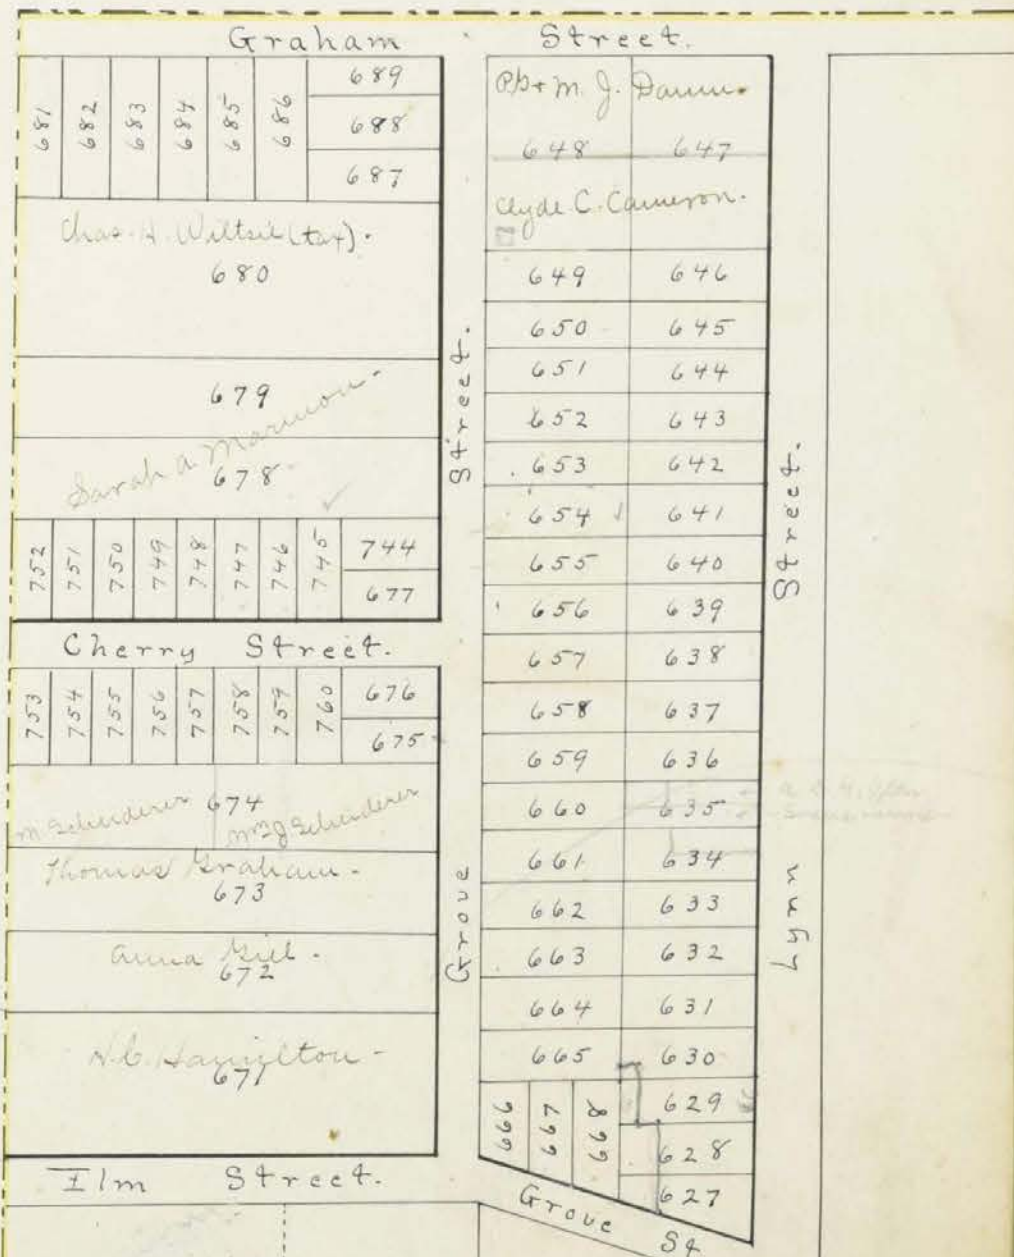 Graham Street.
681 682 683 684 685 686 689
688
687
Chas. H. Wiltsie (tax).
680
679
Sarah A. Marmon.
678
752 751 750 749 748 747 746 745 744
677
Cherry Street.
753 754 755 756 757 758 759 760 676
675
674
M Scheiderer Wm J Scheiderer
Thomas Graham.
673
Anna Gill.
672
N.C. Hamilton
671
Elm Street.
Grove Street.
M. J.
648 647
Clyde C. Cameron.
649 646
650 645
651 644
652 643
653 642
654 641
655 640
656 639
657 638
658 637
659 636
660 635
661 634
662 633
663 632
664 631
665 630
666 667 668 629
628
627
Grove St
Lynn Street.